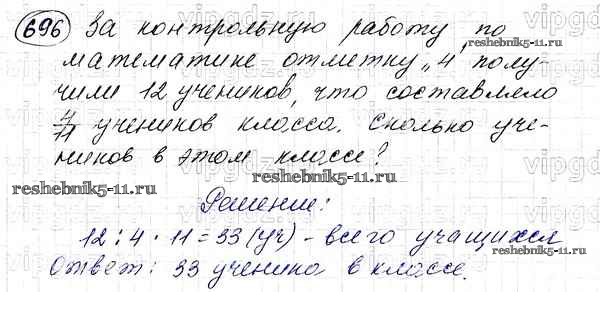 696 За контрольную работу по
математике отметку „4" полу-
чили 12 учеников, что составляло
4/11 учеников класса. Сколько уче-
ников в этом классе?
Решение:
12 : 4 · 11 = 33 (уч) - всего учащихся
Ответ: 33 ученика в классе.
reshebnik5-11.ru
reshebnik5-11.ru
reshebnik5-11.ru
reshebnik5-11.ru